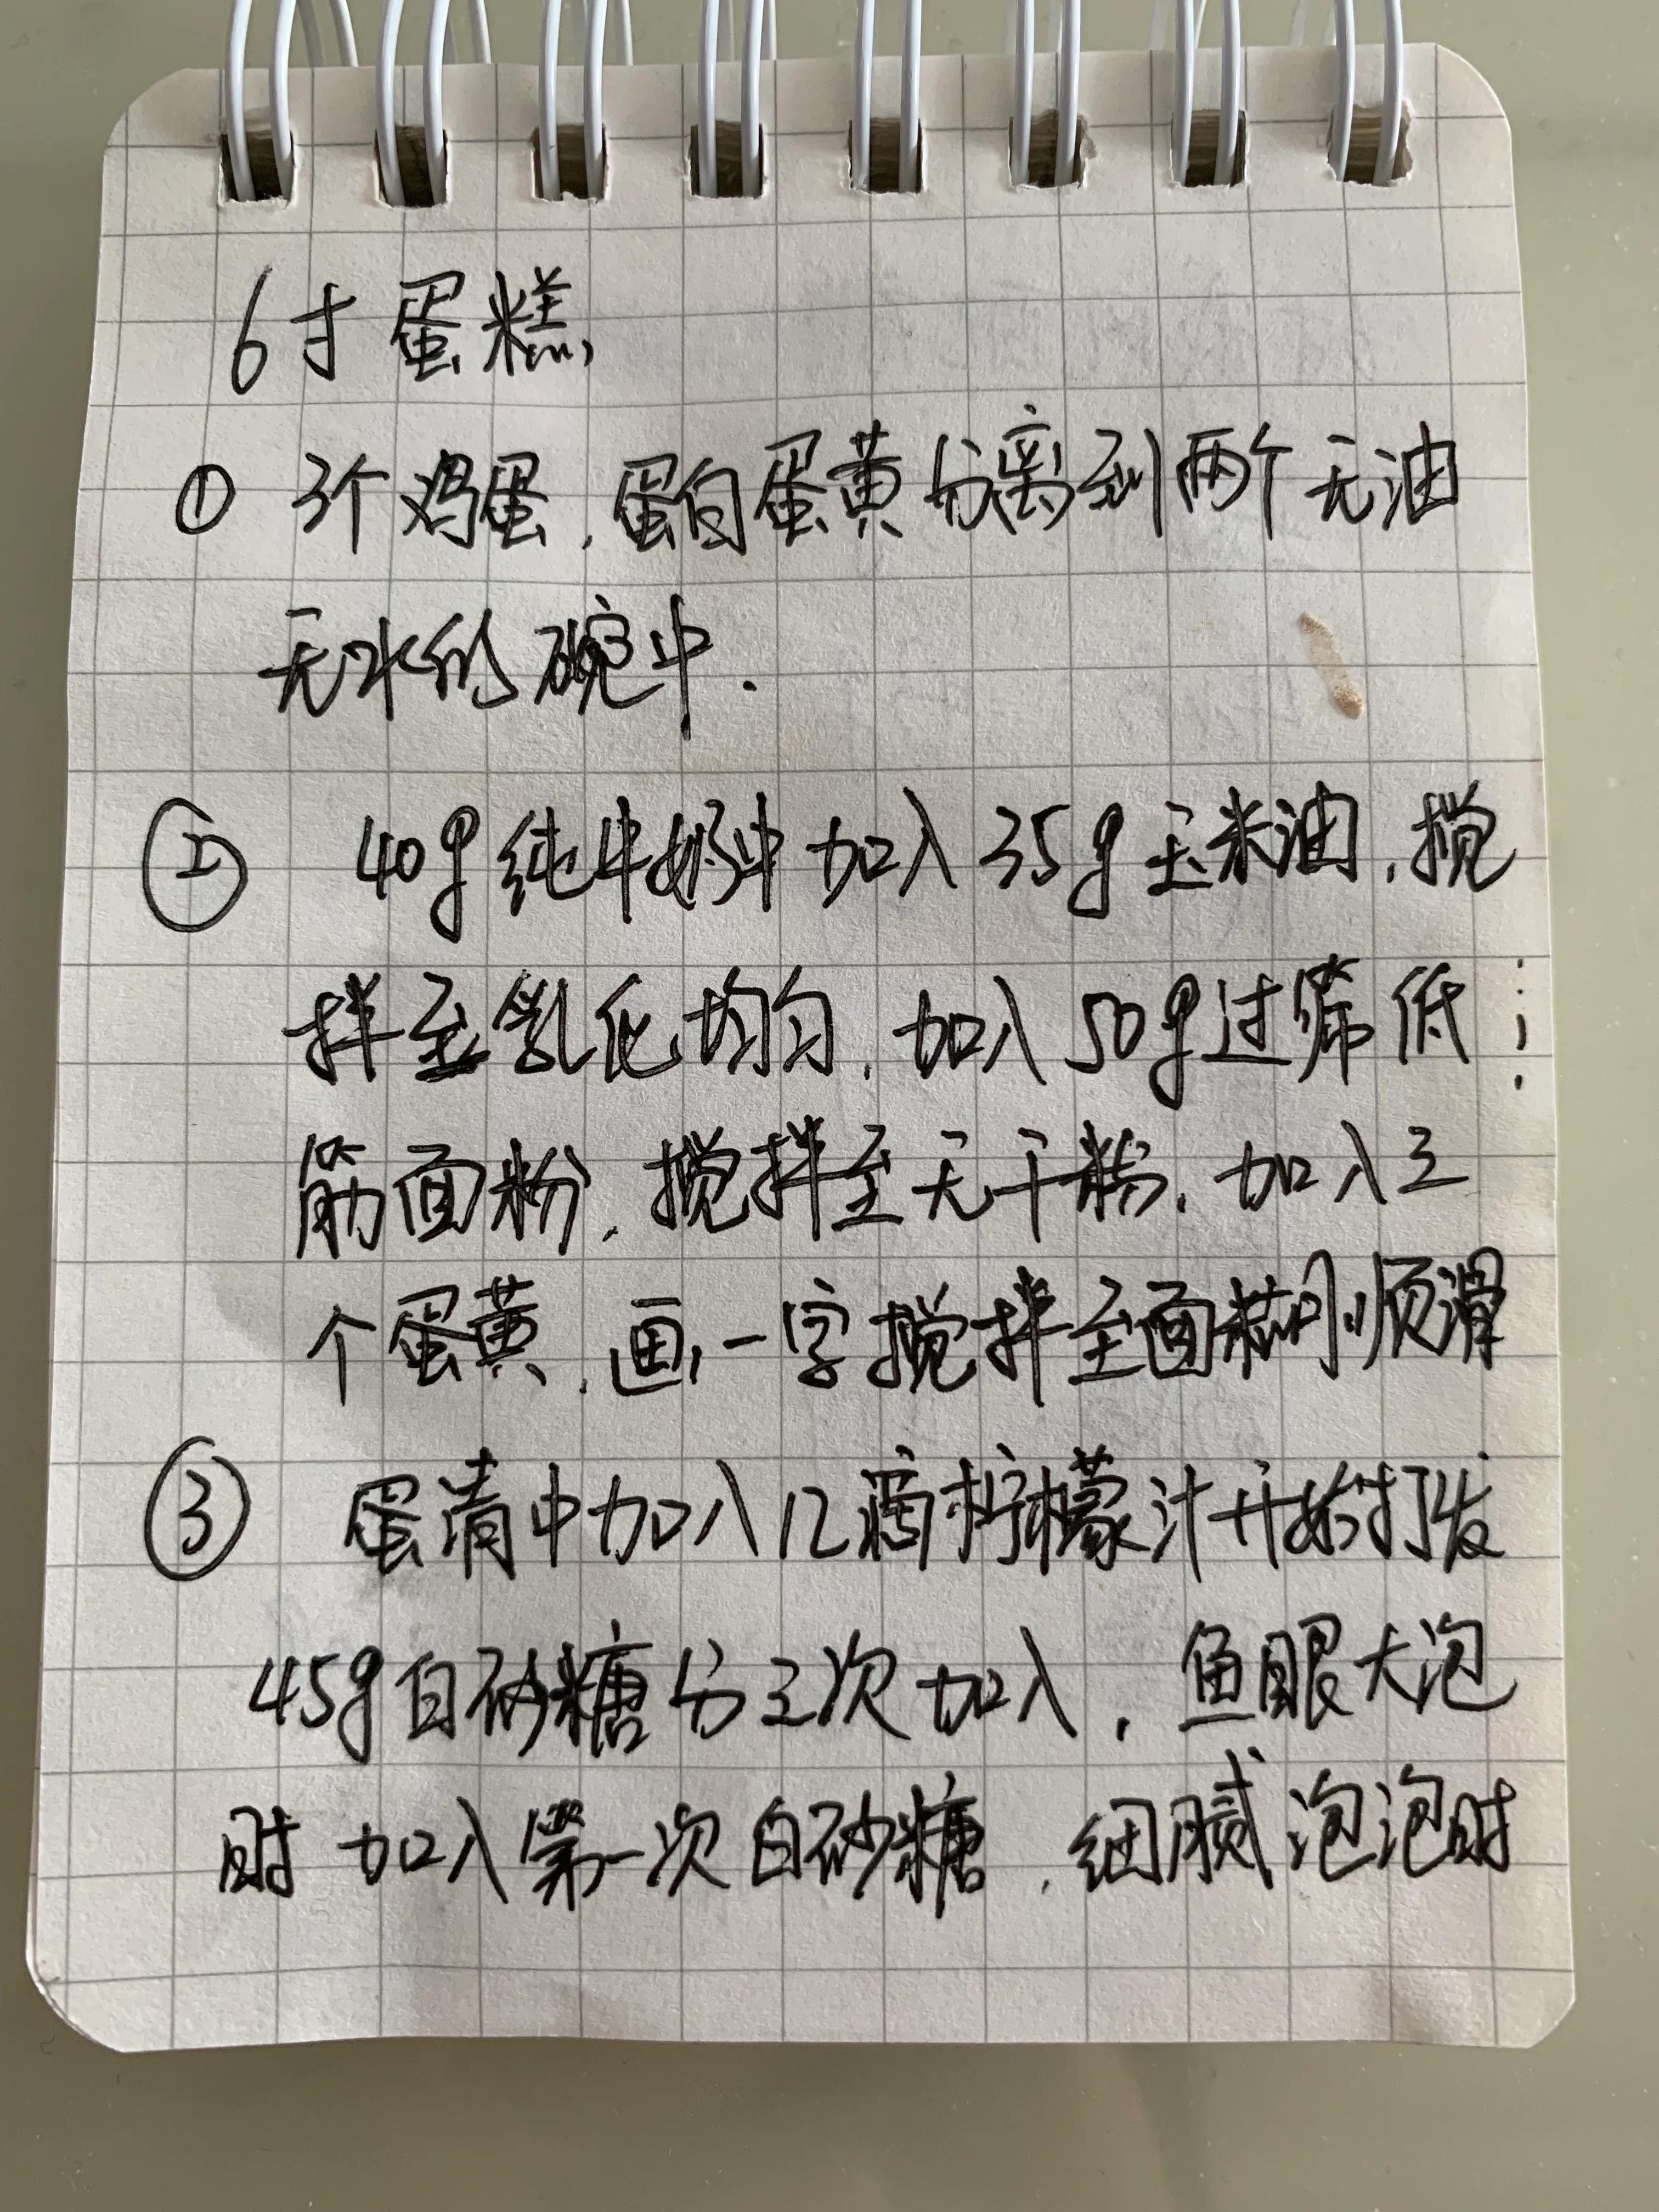 6寸蛋糕
① 3个鸡蛋,蛋白蛋黄分离到两个无油
无水的碗中.
② 40g纯牛奶中加入35g玉米油,搅
拌至乳化均匀,加入50g过筛低
筋面粉,搅拌至无干粉,加入三
个蛋黄,画一字搅拌至面糊顺滑
③ 蛋清中加入几滴柠檬汁开始打发
45g白砂糖分三次加入,鱼眼大泡
时加入第一次白砂糖,细腻泡泡时